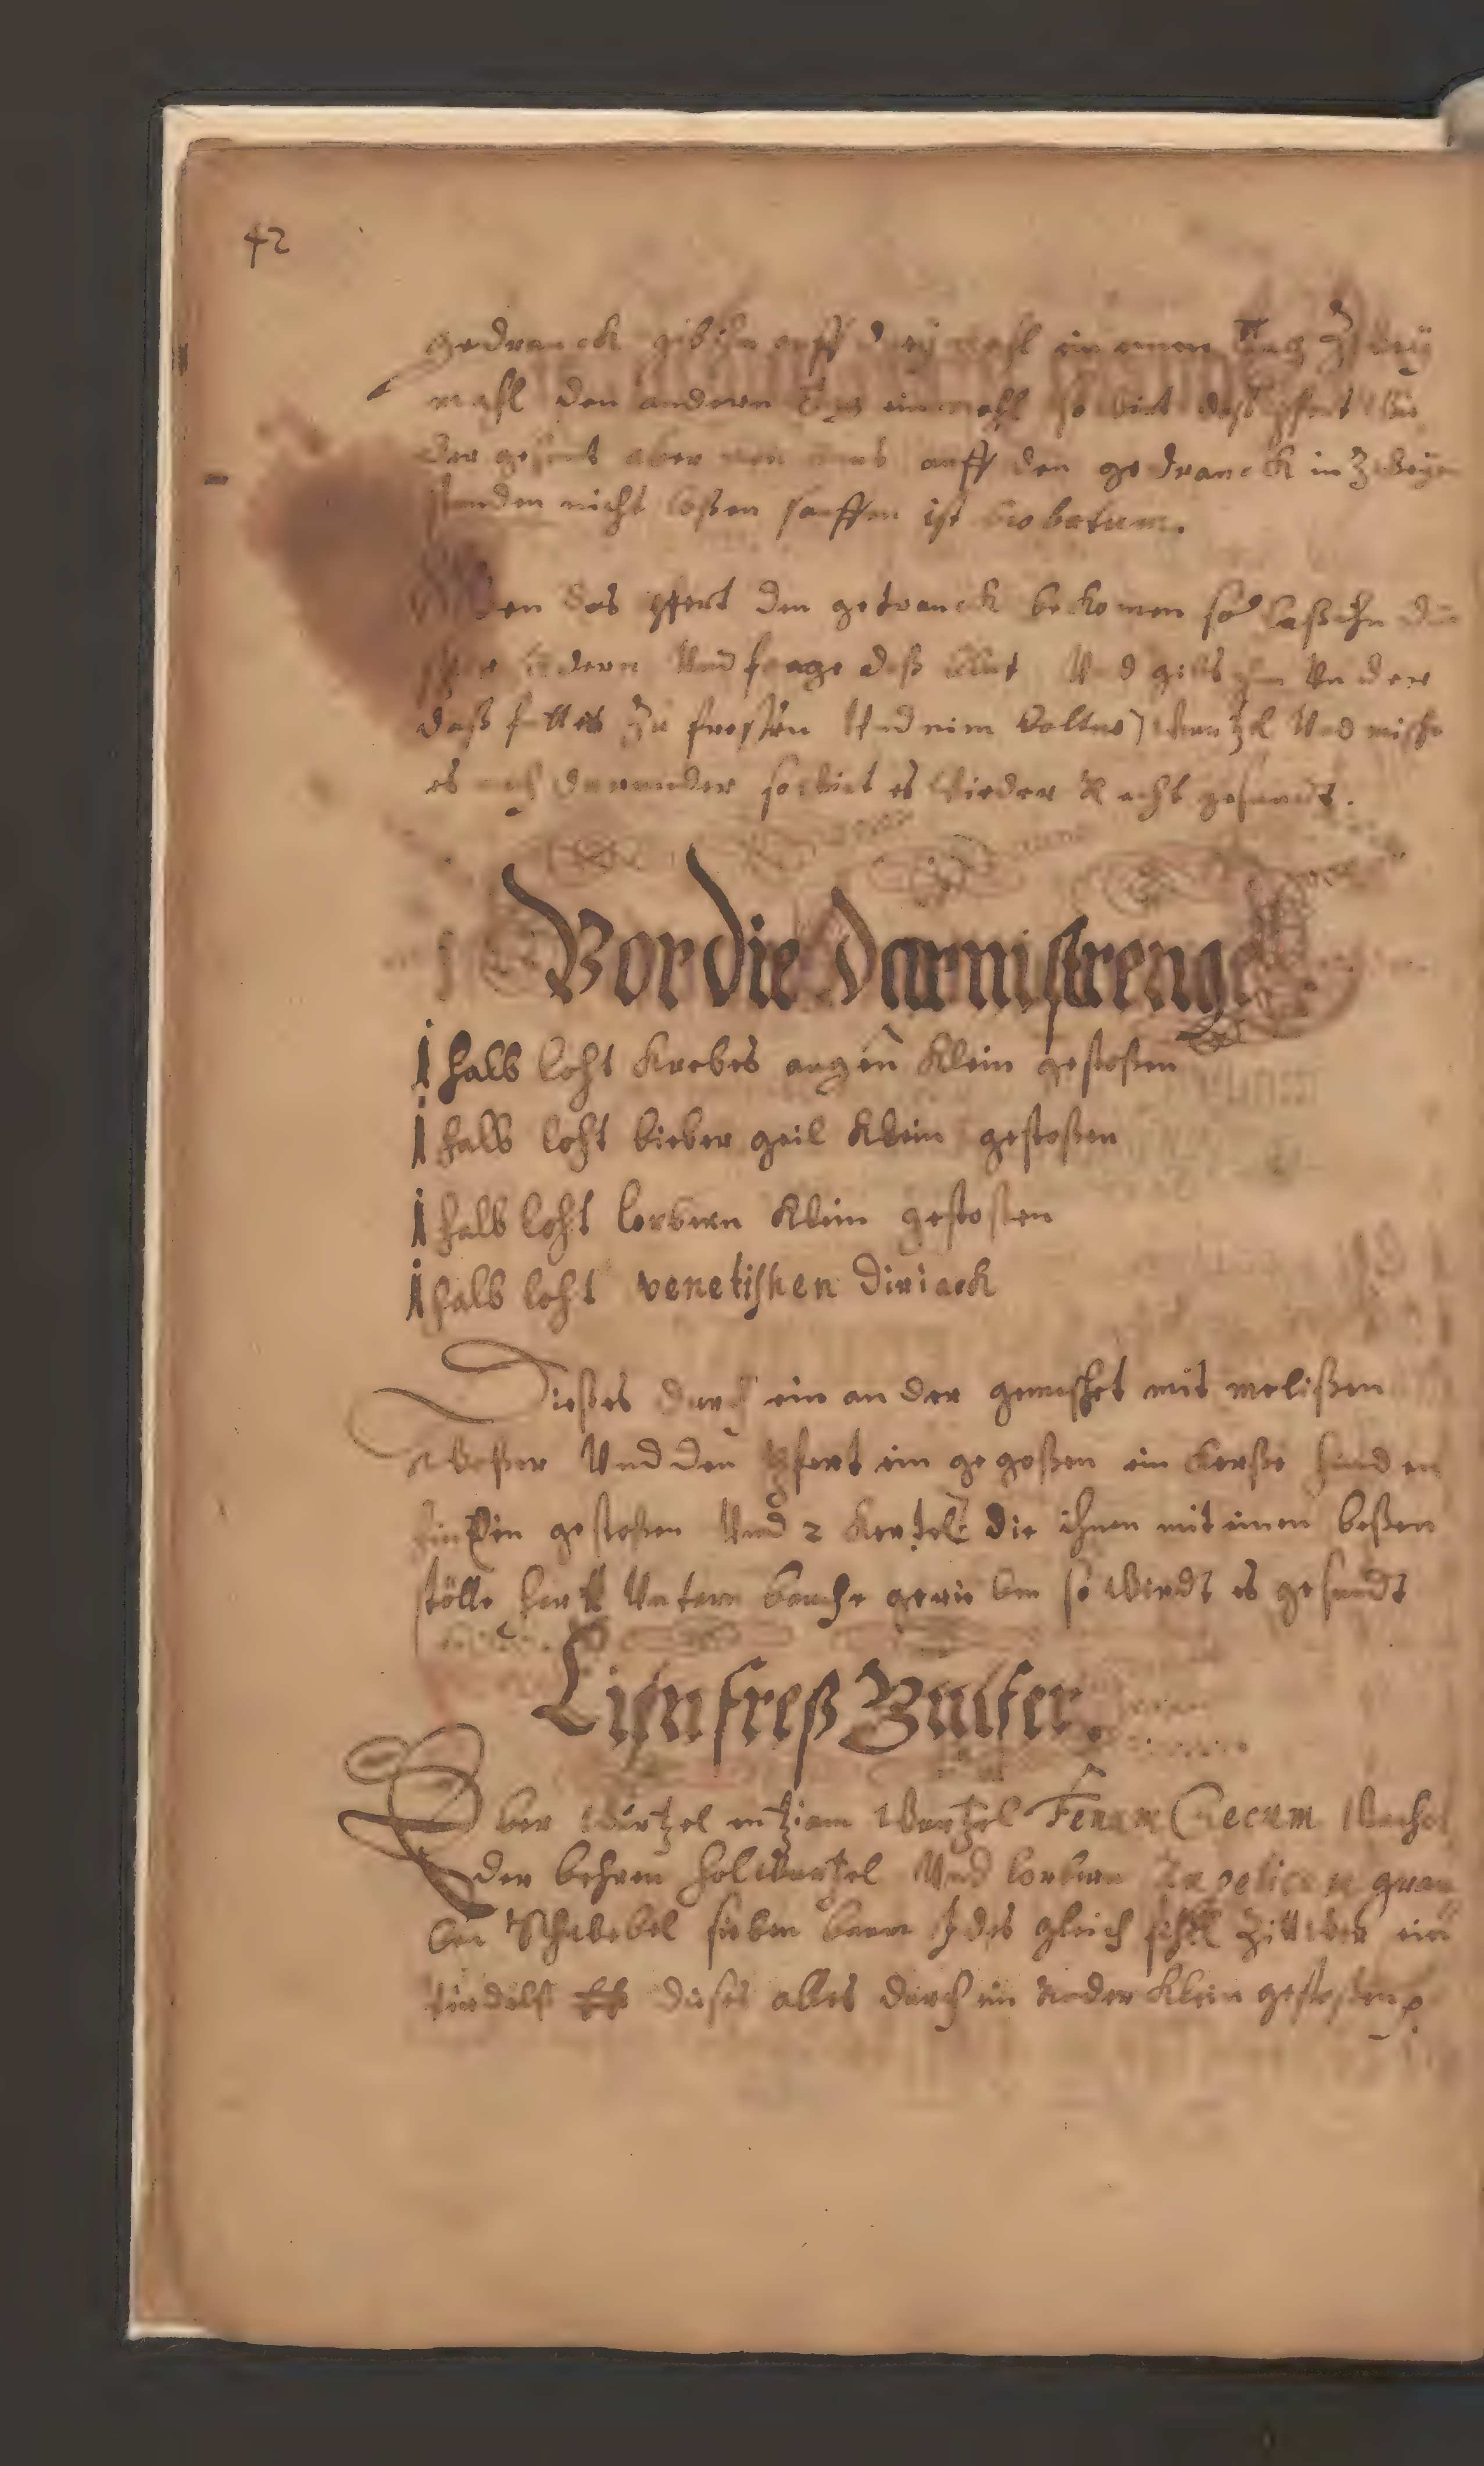 42
gedranck gib ihm auff drey mahl in einen Tag drey
mahl den anderen Tag ein mahl so wirt daß pfert wie
der gesunt aber man muß auff den gedranck in Zweyen
stunden nicht laßen sauffen ist brobatum.
Wen das pfert den getranck bekomen so laß ihn die
adern Und fange daß blut Und gibs ihm Under
daß futter Zu freßen Und nim Wurtzel Und mische
es auch darunder so wirt es wieder Recht gesundt.
Vor die darmstrenge
1 halb loht Krebes augen Klein gestoßen
1 halb loht bieber geil Klein gestoßen
1 halb loht lorbern Klein gestoßen
1 halb loht venetishen Diriack
Dießes durch ein ander gemischet mit melißen
Waßer Und den pfert ein gegoßen ein kerße hinden
gestoßen Und 2 Kertels die ihnen mit einen beßen
stölle hart Untern bauche gerieben so wirdt es gesundt
freß Pulfer.
Eber Wurtzel entziam Wurtzel Fenum Grecum Wachol
der behren holwurtzel Und lorbern
Schwebel sieben baum Jdes gleich fehll Zittwer ein
dieses alles durch ein ander Klein gestoßen